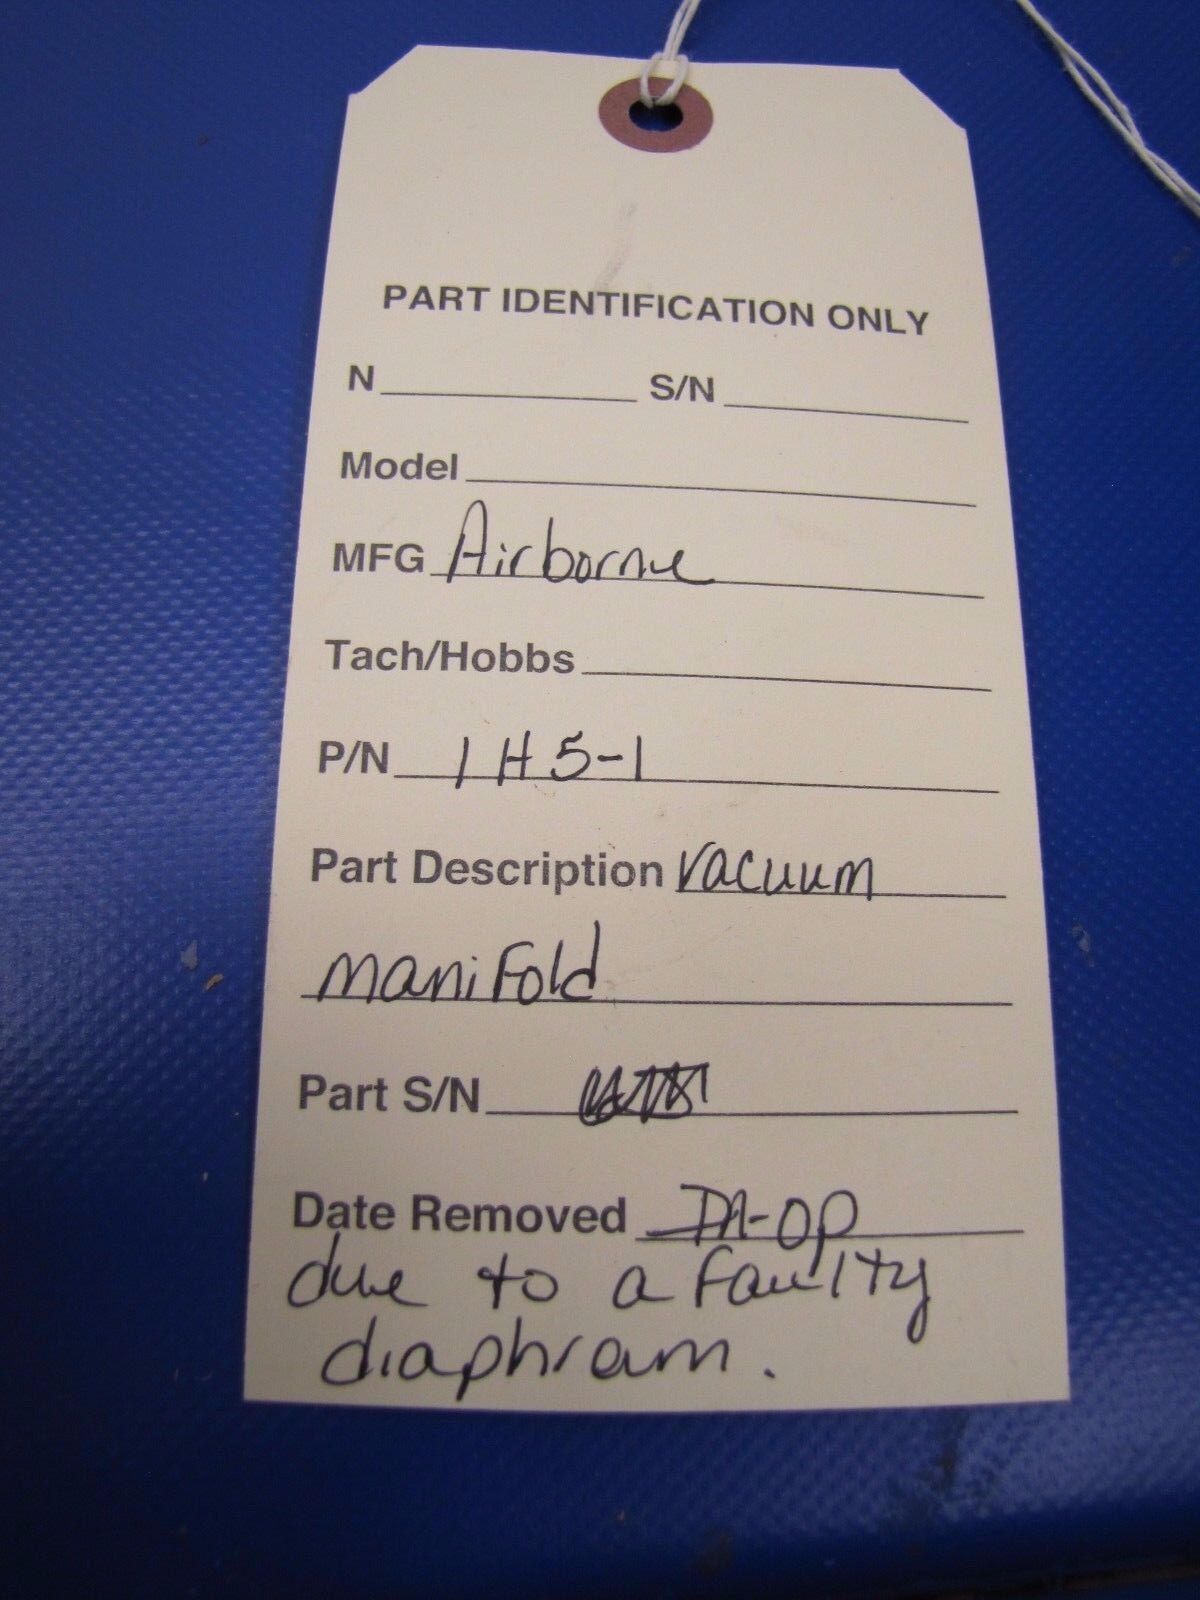 PART IDENTIFICATION ONLY
N S/N
Model
MFG Airborne
Tach/Hobbs
P/N 1H5-1
Part Description Vacuum
manifold
Part S/N
Date Removed In-op
due to a faulty
diaphram.